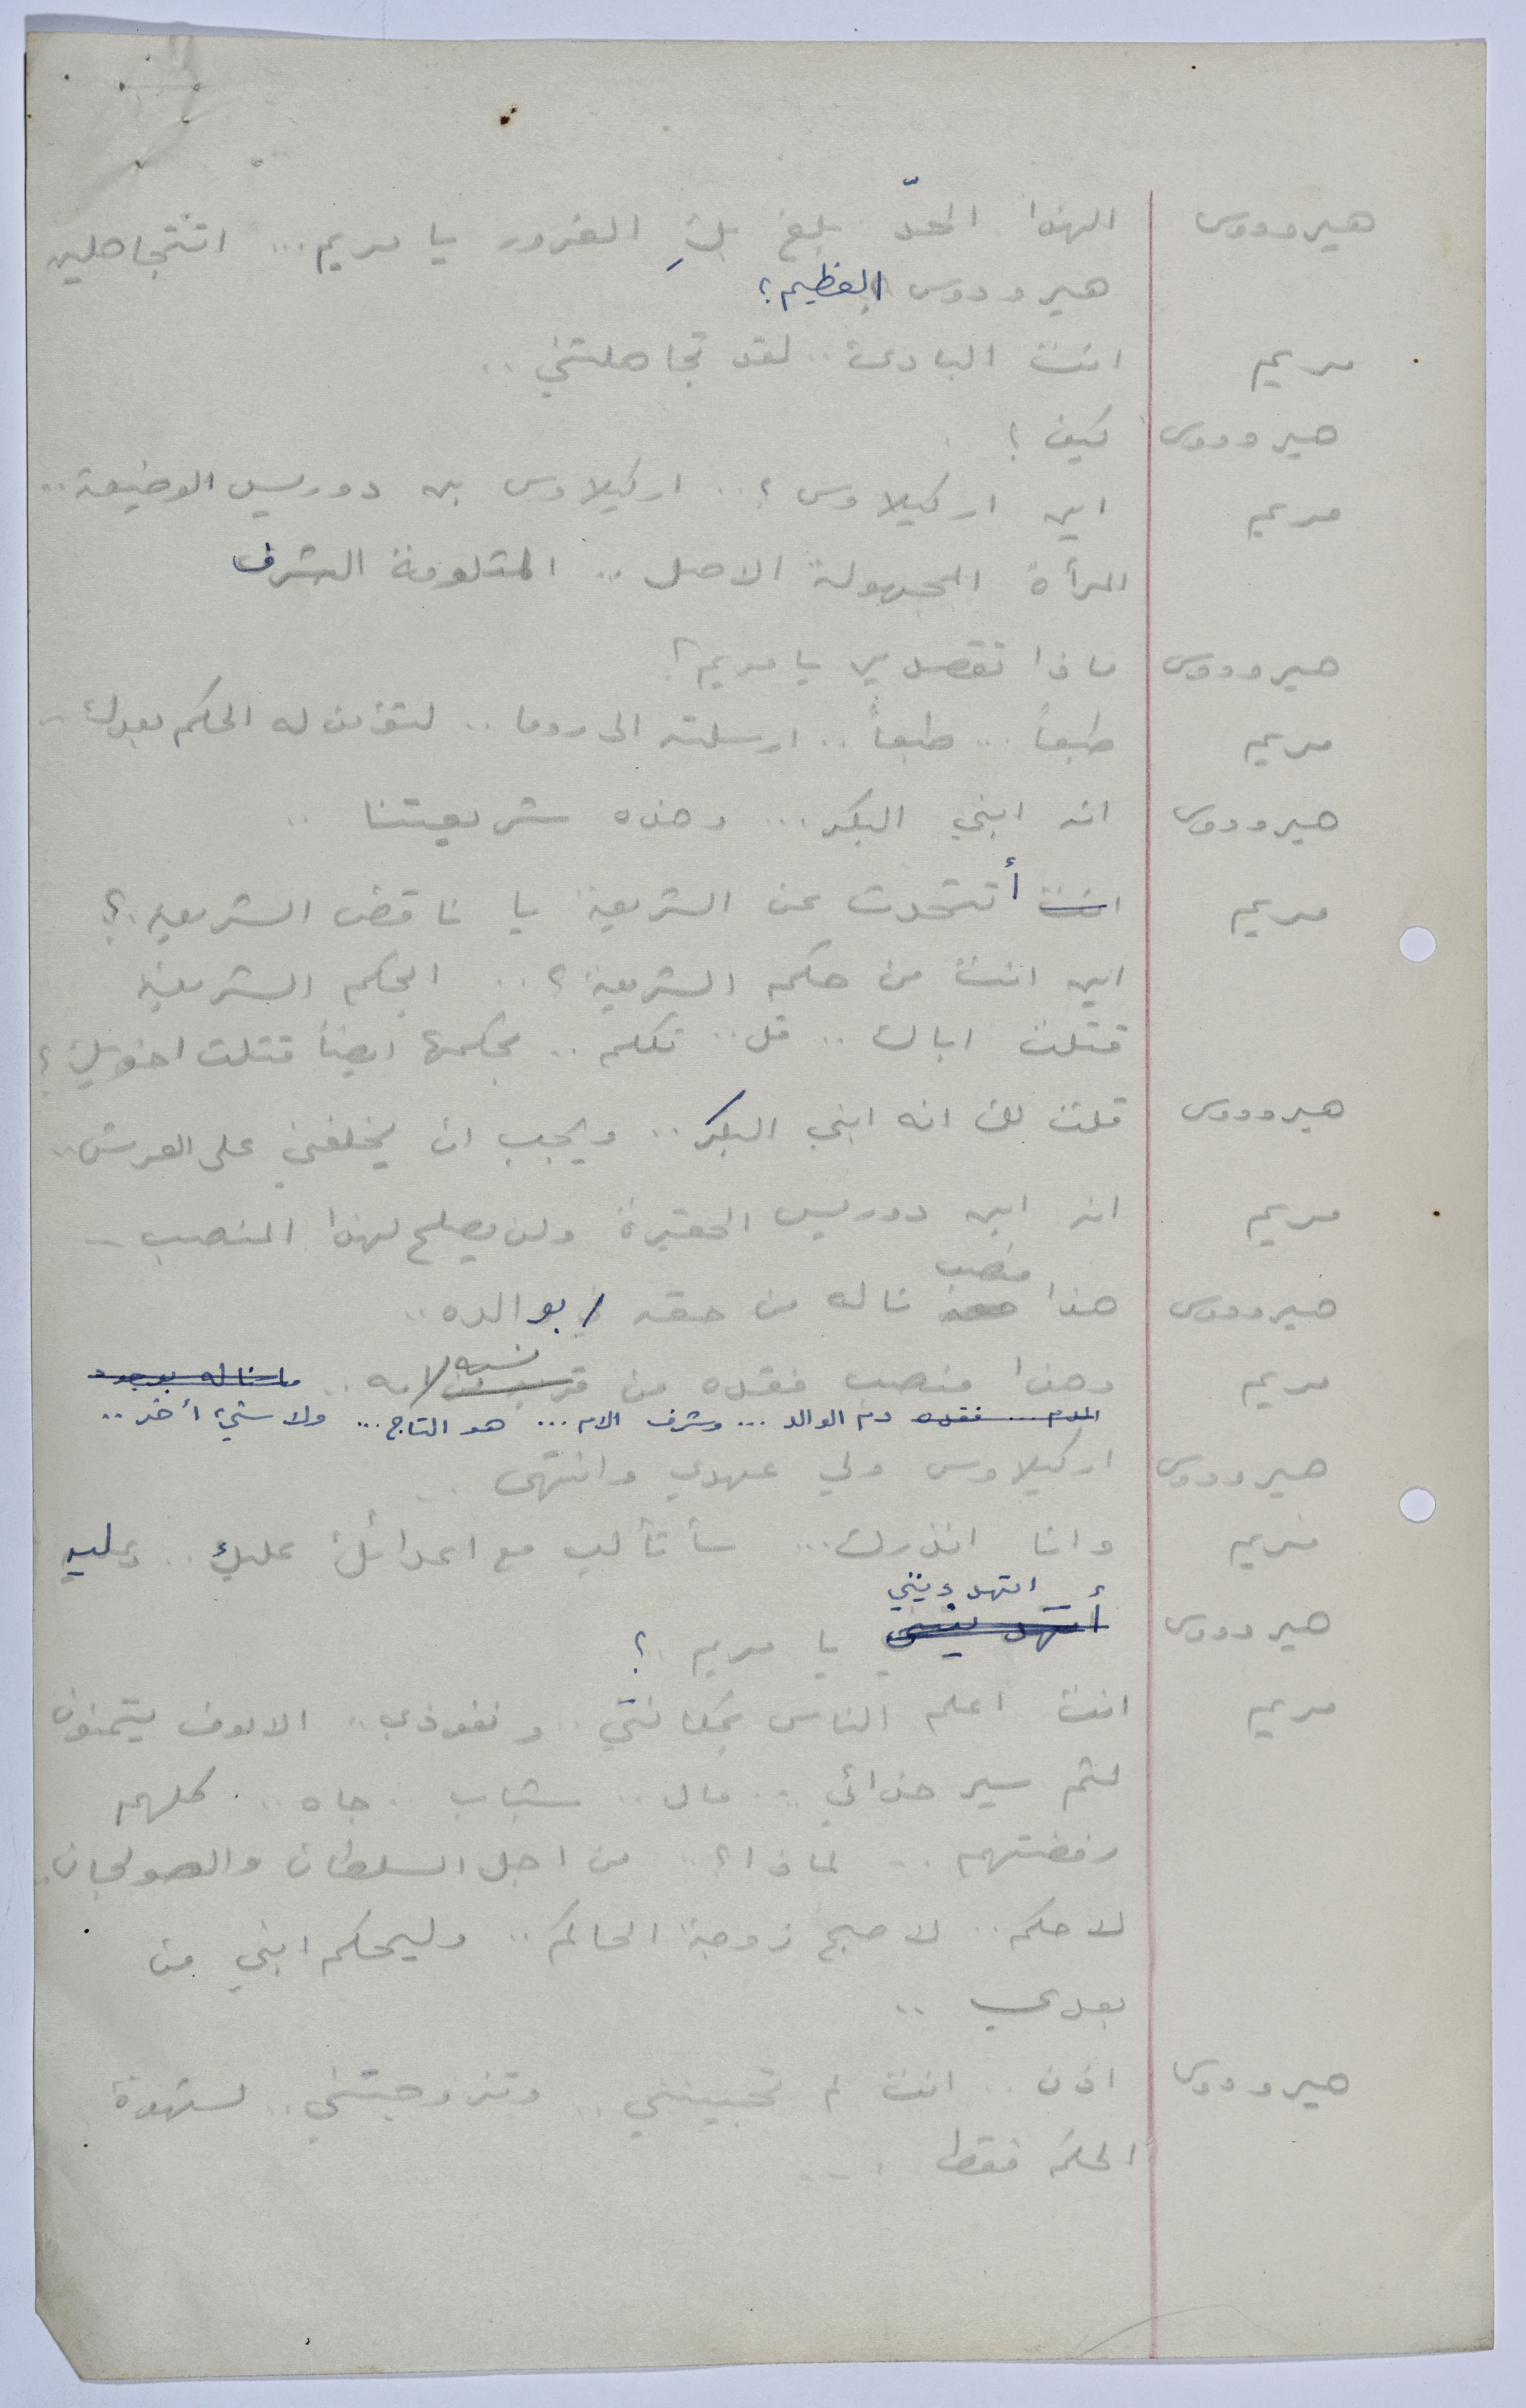 هيرودوس ألهذا الحدّ بلغ بكِ الغرور يا مريم... اتتجاهلين
هيرودوس العظيم؟
مريم انت البادئ.. لقد تجاهلتني..
هيرودوس كيف؟
مريم اين اركيلاوس؟.. اركيلاوس بن دوريس الوضيعة..
المرأة المجهولة الاصل.. المثلومة الشرف
هيرودوس ماذا تقصدين يا مريم؟
مريم طبعاً... طبعاً.. ارسلته الى روما.. لتؤمن له الحكم بعدك..
هيرودوس انه ابني البكر... وهذه شريعتنا..
مريم انت أتتحدث عن الشريعة يا ناقض الشريعة؟
اين انت من حكم الشريعة؟.. ابحكم الشريعة
قتلت اباك.. قل.. تكلم.. بحكمها ايضاً قتلت اخويك؟
هيرودوس قلت لك انه ابني البكر.. ويجب ان يخلفني على العرش..
مريم انه ابن دوريس الحقيرة ولن يصلح لهذا المنصب..
منصب
هيرودوس هذا ناله من حقه بوالده..
نسبه
مريم وهذا منصب فقده من لامه.. ما ناله بوجود
الدم... فقده دم الوالد... وشرف الام... هو التاج... ولا شيء أخر..
هيرودوس اركيلاوس ولي عهدي وانتهى..
مريم وانا انذرك... سأتألب مع اعدائك عليك.. وعليه
اتهددينني
هيرودوس أتهدديني يا مريم؟
مريم انت اعلم الناس بمكانتي.. ونفوذي.. الالوف يتمنون
لثم سير حذائي.. مال.. شباب.. جاه.. كلهم
رفضتهم.. لماذا؟.. من اجل السلطان والصولجان..
لاحكم.. لاصبح زوجة الحاكم.. وليحكم ابني من
بعدي..
هيرودوس اذن.. انت لم تحبينني.. وتزوجتني.. لشهوة
الحكم فقط...